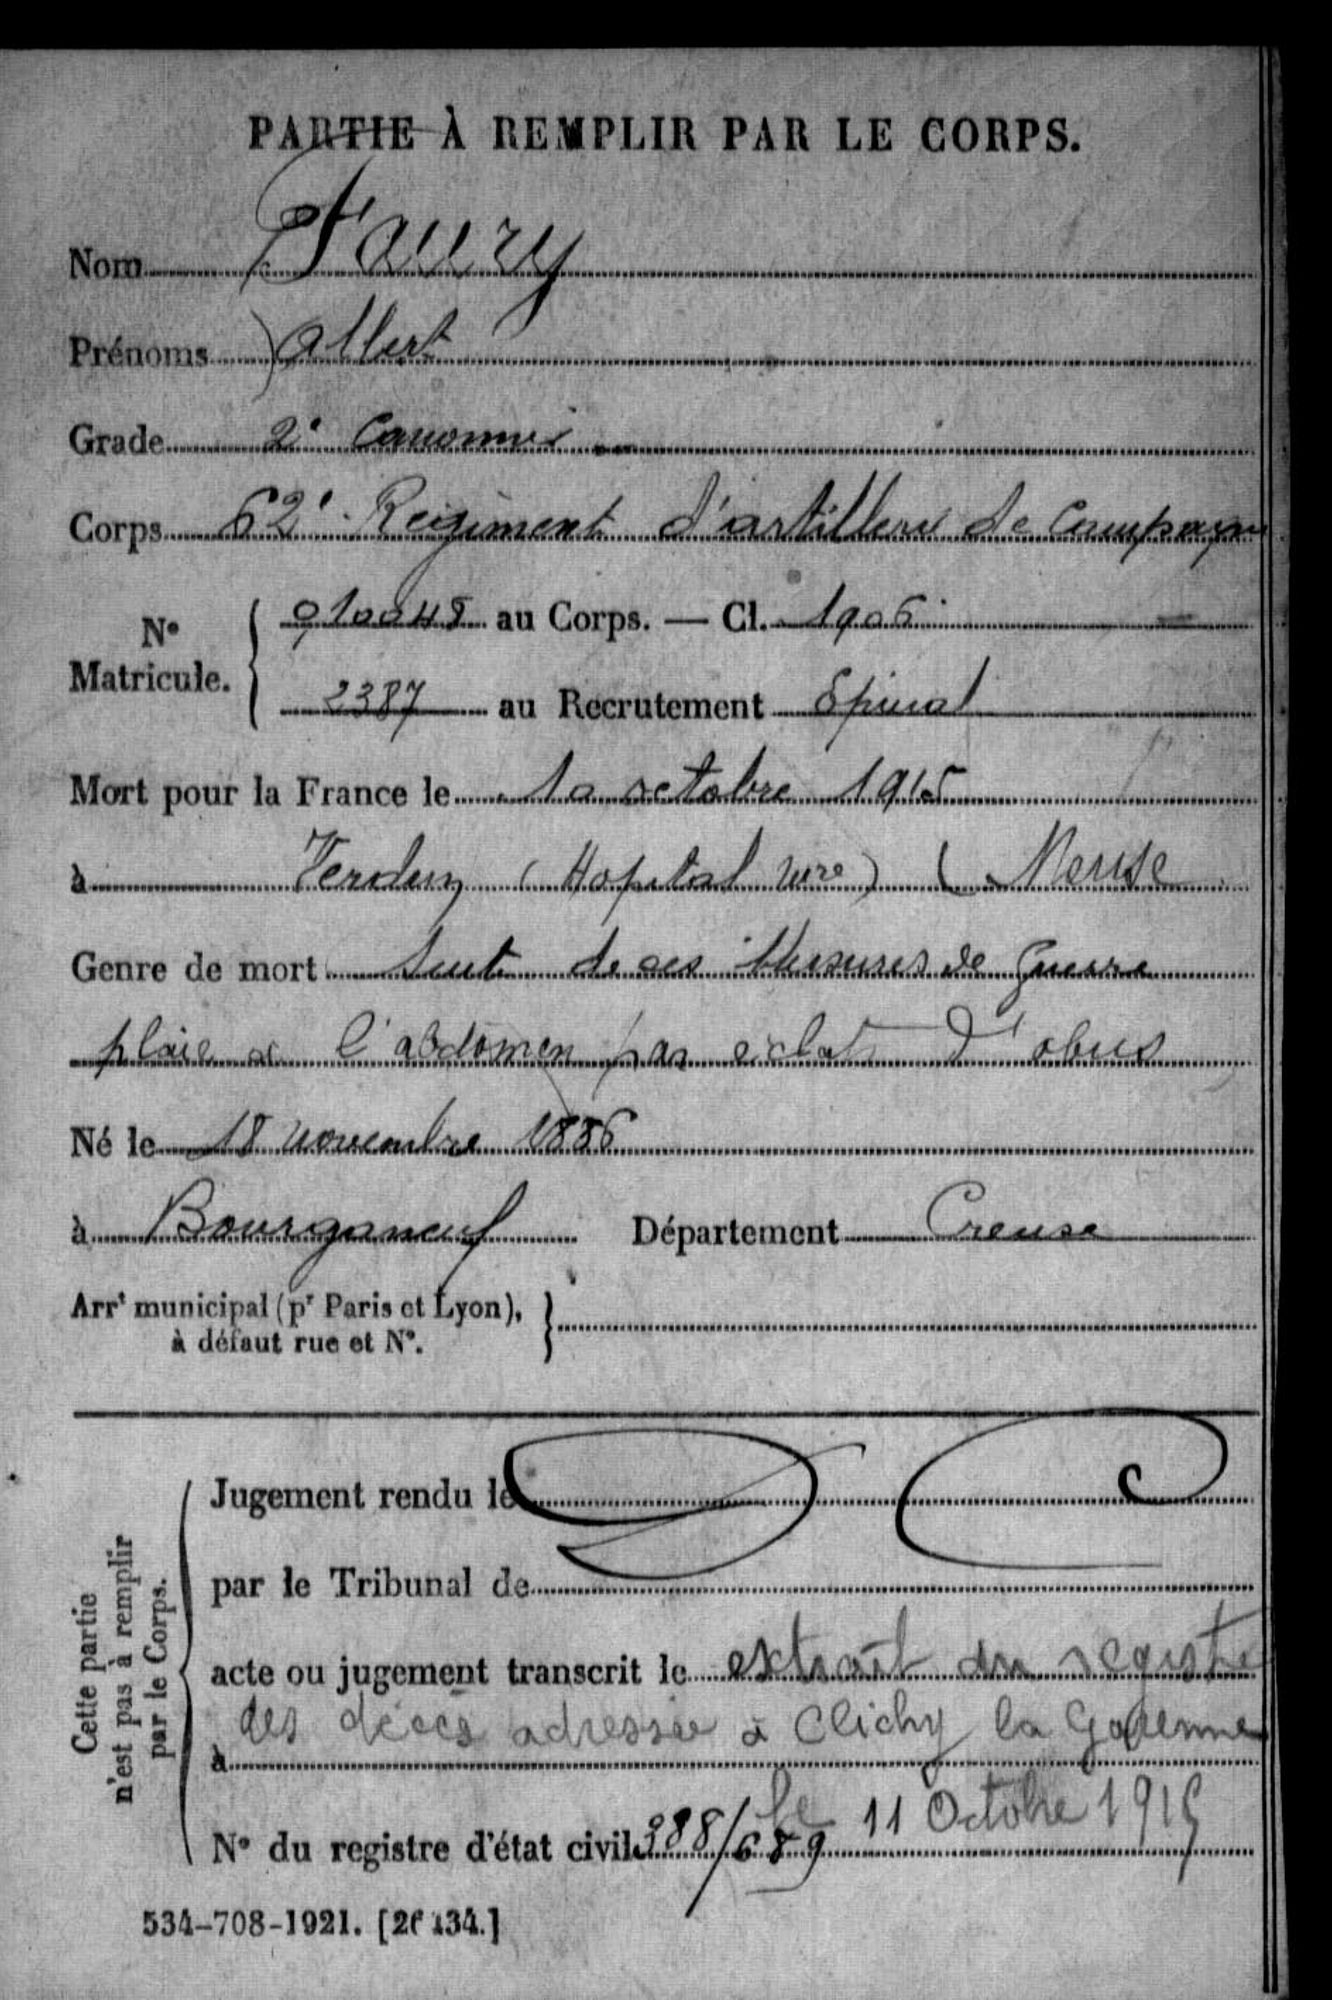 PARTIE À REMPLIR PAR LE CORPS.
Nom Faury
Prénoms Albert
Grade 2e Canonnier
Corps 62e Régiment d'artillerie de Campagne
No Matricule. 010048 au Corps. — Cl. 1906
2387 au Recrutement Epinal
Mort pour la France le 10 octobre 1915
à Verdun (Hopital ) (Meuse
Genre de mort Suite de ses blessures de guerre
plaie à l'abdomen par éclat d'obus
Né le 18 novembre 1886
à Bourganeuf Département Creuse
Arrt municipal (pr Paris et Lyon),
à défaut rue et No.
Cette partie
n'est pas à remplir
par le Corps.
Jugement rendu le
par le Tribunal de
acte ou jugement transcrit le extrait du registre
des décès adressée à Clichy la Garenne
à
le 11 Octobre 1915
No du registre d'état civil 388/689
534-708-1921. [26134.]